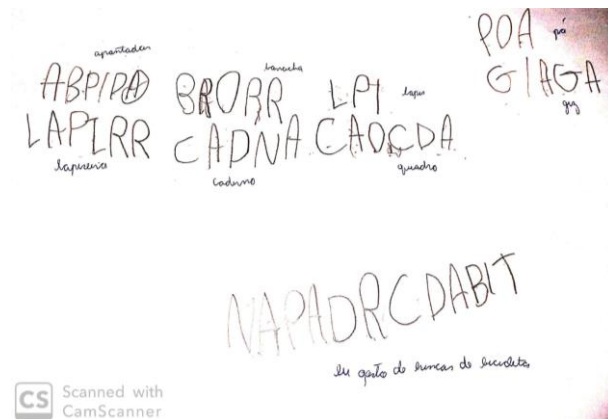 POA
pó
GIAGA
giz
apontador
ABPIPA
borracha
BRORR
lapis
LPI
LAPIRR
lapiseira
CADNA
caderno
CAOCDA
quadro
NAPADRCDABIT
eu gosto de brincar de bicicleta
CS Scanned with
CamScanner